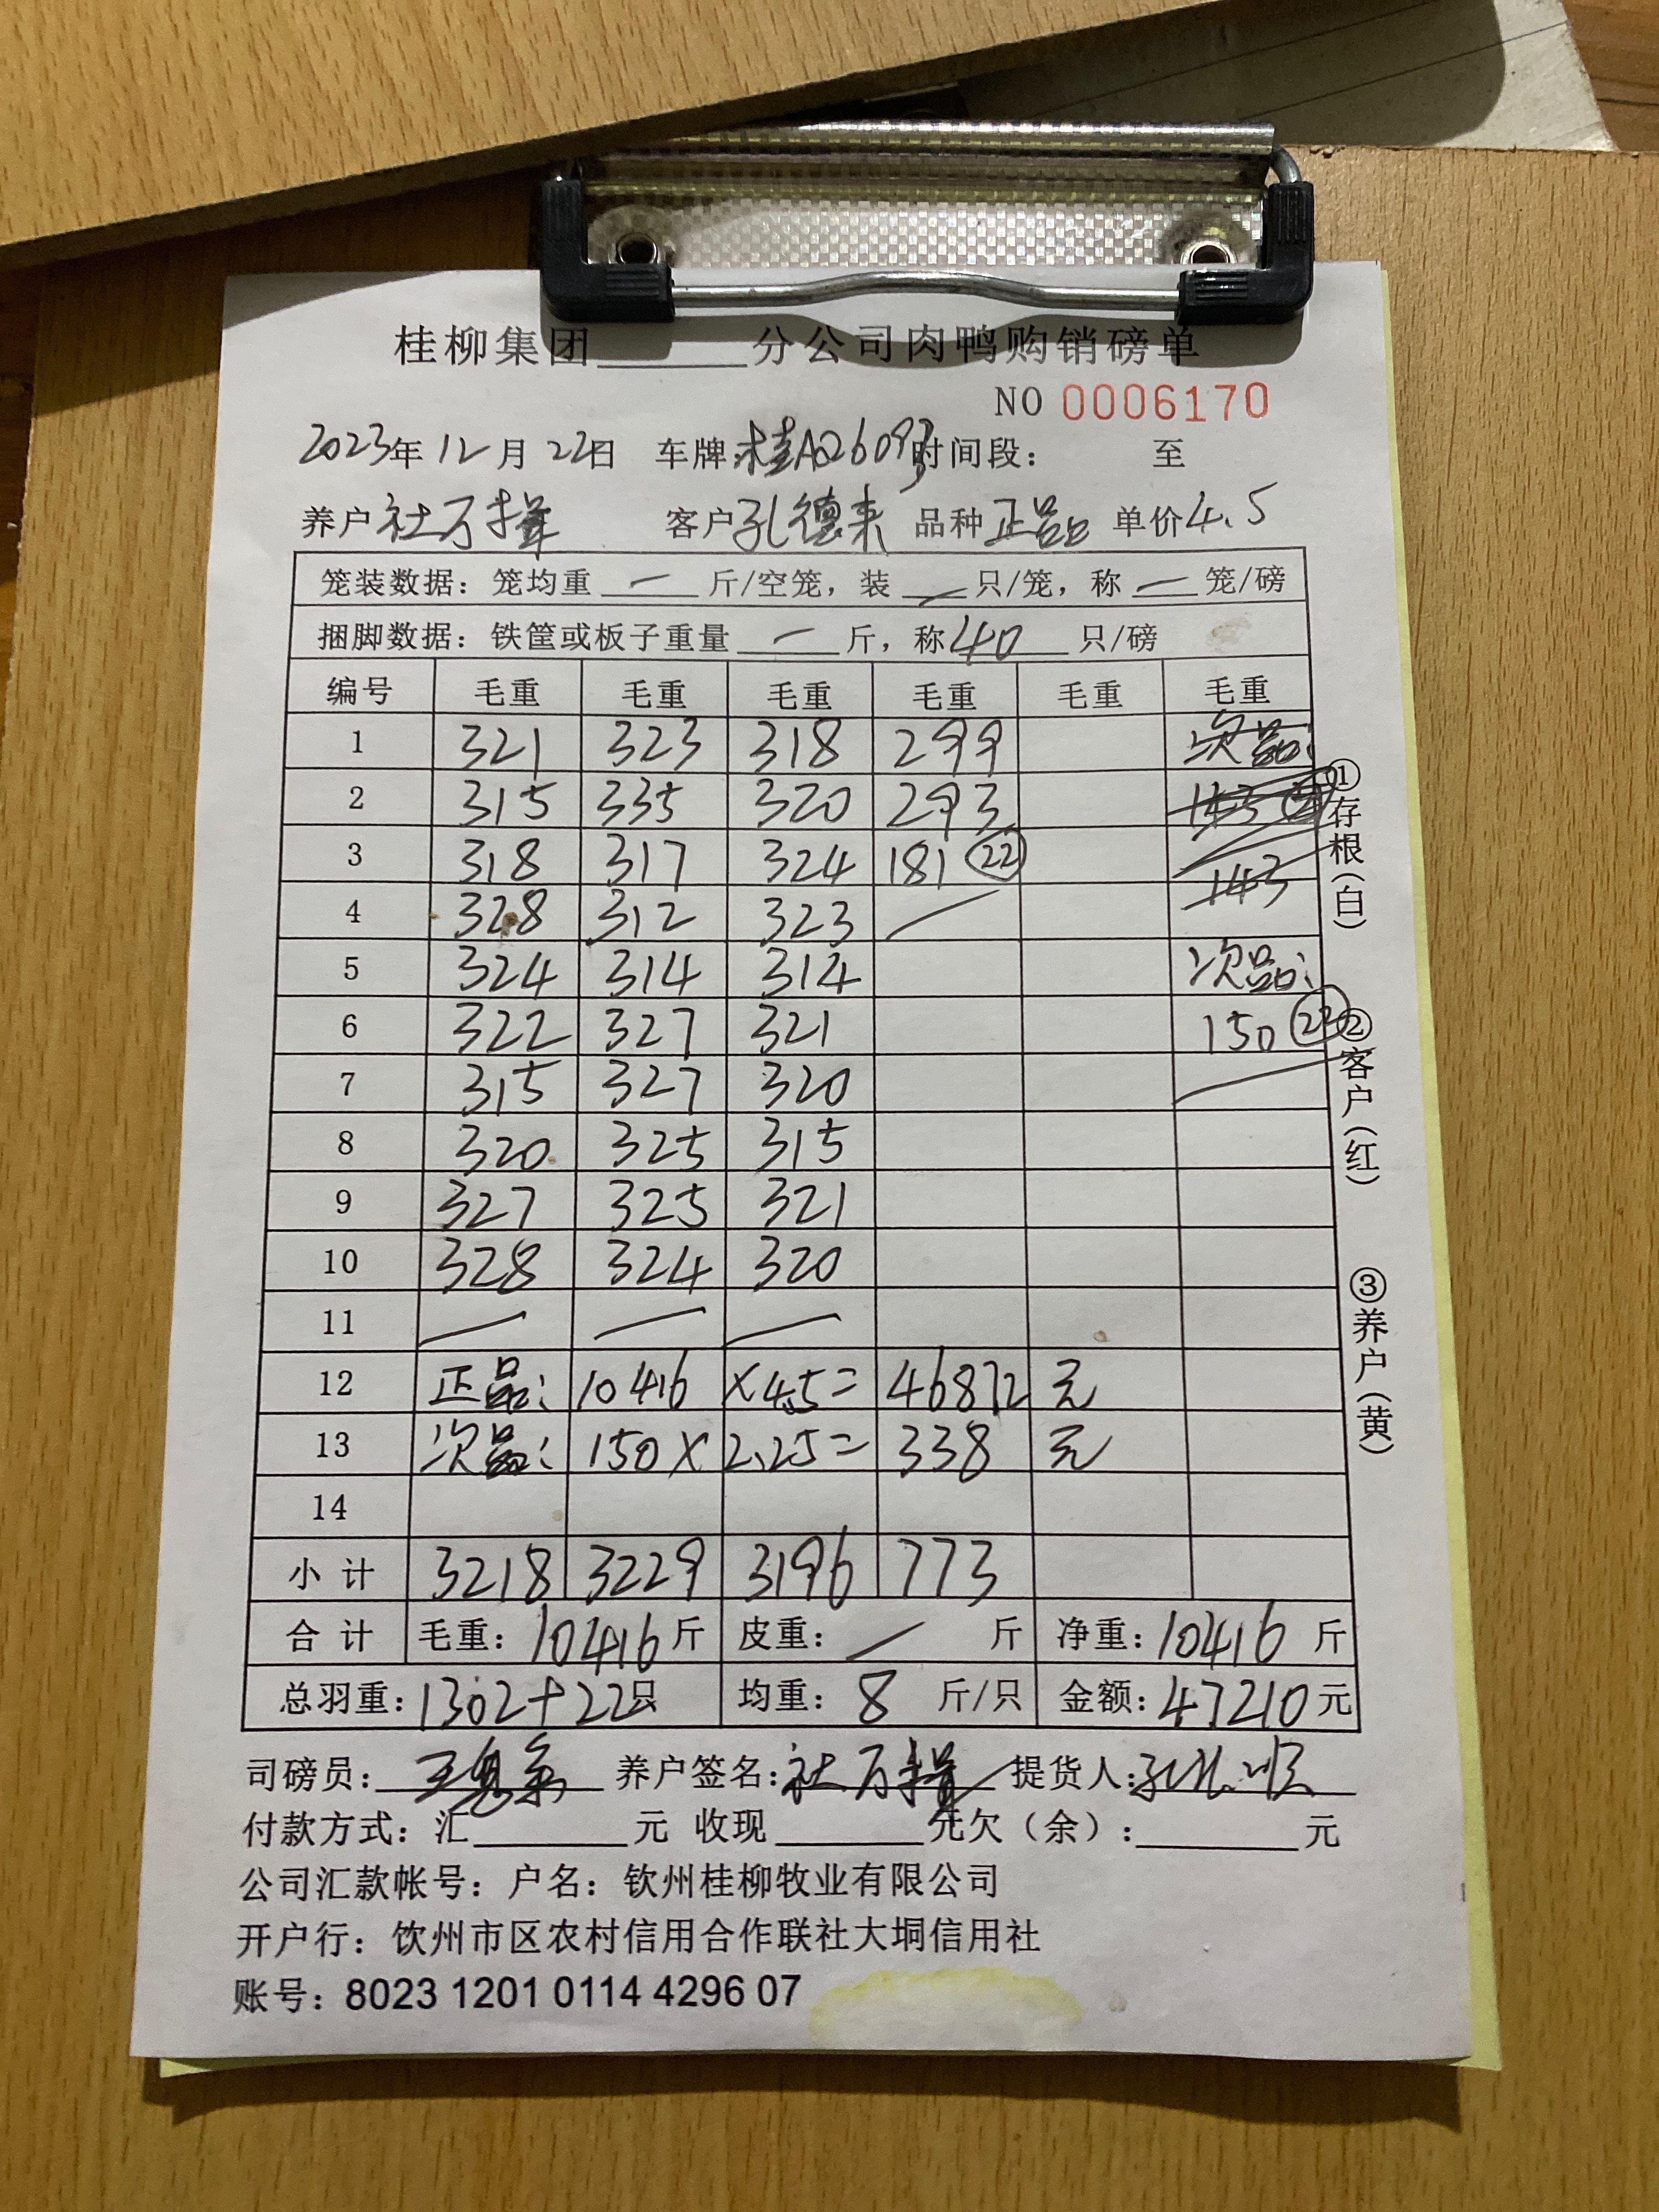 桂柳集团______分公司肉鸭购销磅单
NO 0006170
2023年 12月 22日 车牌:桂A02609 时间段: 至
养户 社万 客户 孔德来 品种 正品 单价 4.5
笼装数据: 笼均重 — 斤/空笼, 装 — 只/笼, 称 — 笼/磅
捆脚数据: 铁筐或板子重量 — 斤, 称 40 只/磅
编号 毛重 毛重 毛重 毛重 毛重 毛重
1 321 323 318 299 次品:
2 315 335 320 293 143
3 318 317 324 181 ㉒ 143
4 328 312 323 —
5 324 314 314 次品:
6 322 327 321 150 ㉒
7 315 327 320
8 320 325 315
9 327 325 321
10 328 324 320
11 — — —
12 正品: 10416 ×4.5= 46872 元
13 次品: 150 × 2.25= 338 元
14
小计 3218 3229 3196 773
合计 毛重: 10416 斤 皮重: — 斤 净重: 10416 斤
总羽重: 1302+22只 均重: 8 斤/只 金额: 47210 元
司磅员: 养户签名: 社万 提货人:
付款方式: 汇______元 收现______元欠(余):______元
公司汇款帐号: 户名: 钦州桂柳牧业有限公司
开户行: 钦州市区农村信用合作联社大垌信用社
账号: 8023 1201 0114 4296 07
①存根(白)
②客户(红)
③养户(黄)